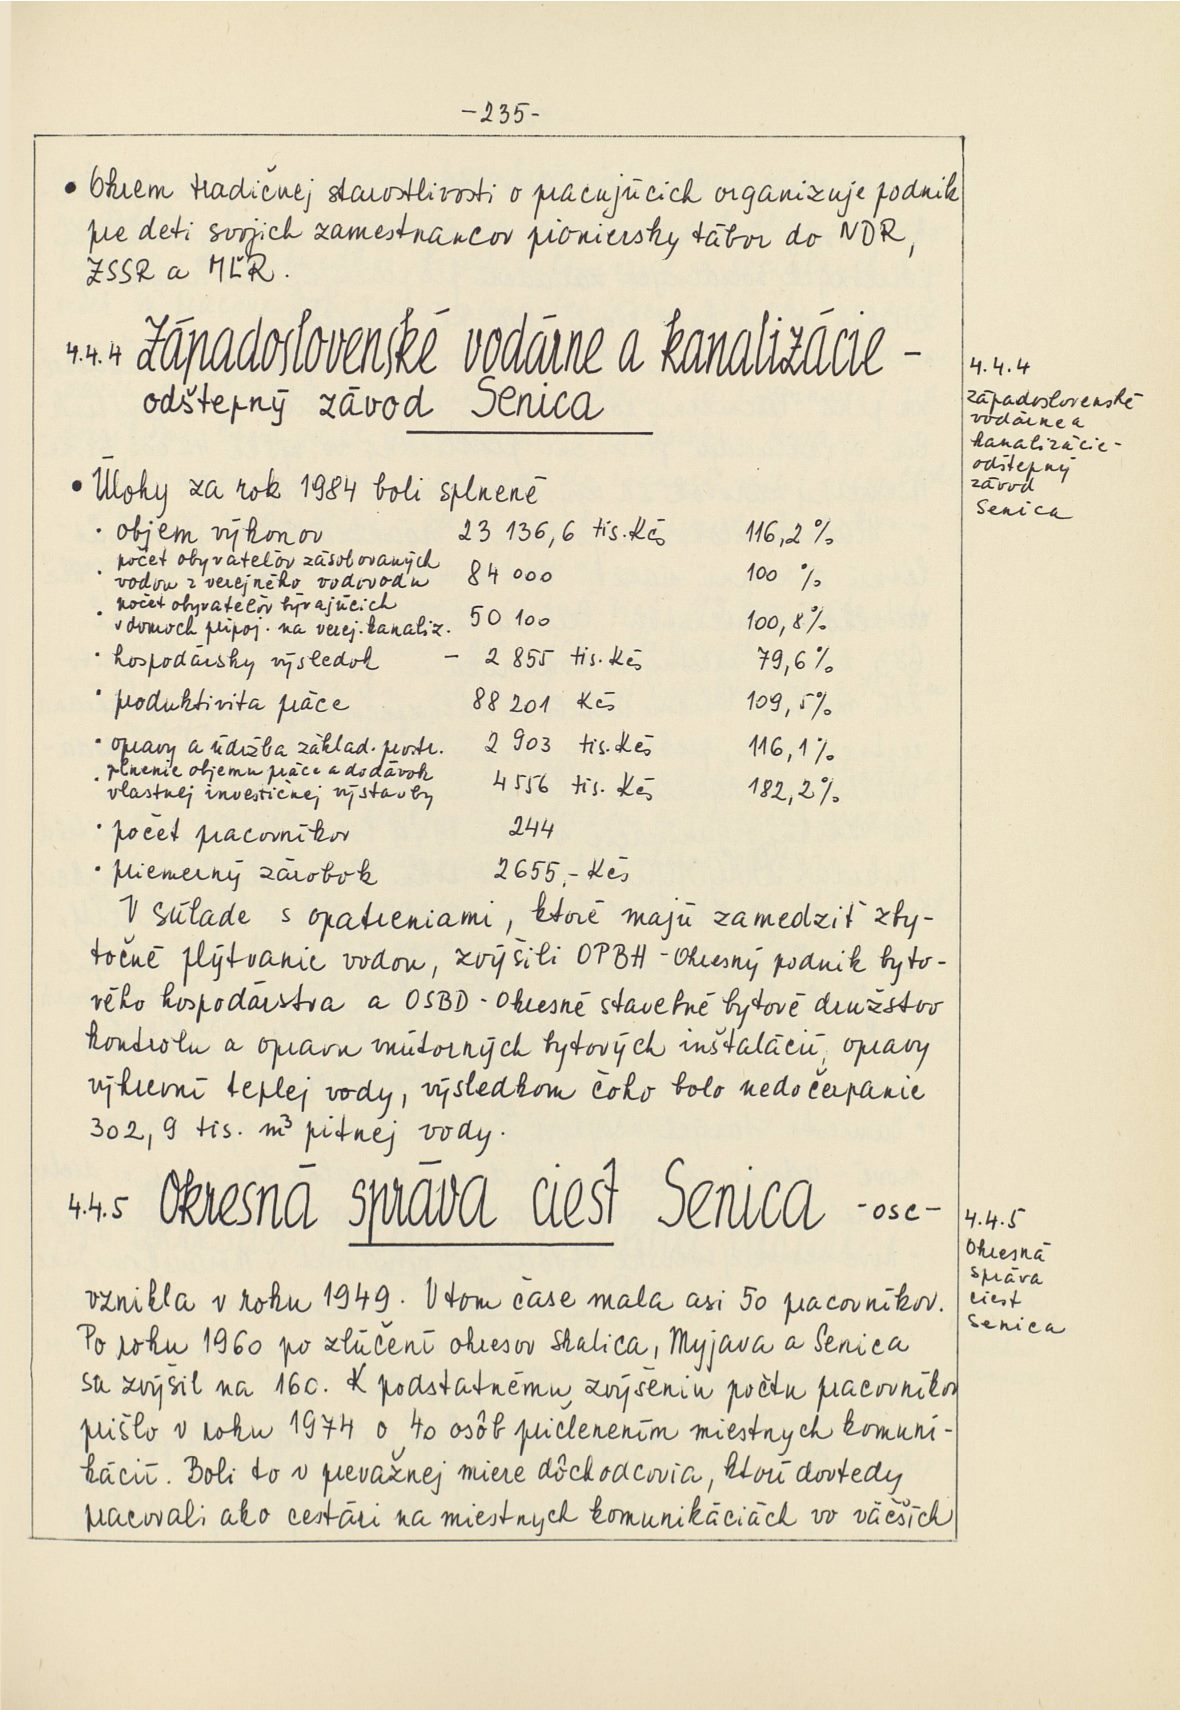 -235-
• Okrem tradičnej starostlivosti o pracujúcich organizuje podnik
pre deti svojich zamestnancov pioniersky tábor do NDR,
ZSSR a MĽR.
4.4.4 Západoslovenské vodárne a kanalizácie -
odštepný závod Senica
4.4.4
Západoslovenské
vodárne a
kanalizácie -
odštepný
závod
Senica
• Úlohy za rok 1984 boli splnené
· objem výkonov 23 136,6 tis. Kčs 116,2 %
· počet obyvateľov zásobovaných
vodou z verejného vodovodu 84 000 100 %
· počet obyvateľov bývajúcich
v domoch pripoj. na verej. kanaliz. 50 100 100,8 %
· hospodársky výsledok - 2 855 tis. Kčs 79,6 %
· produktivita práce 88 201 Kčs 109,5 %
· opravy a údržba základ. prostr. 2 903 tis. Kčs 116,1 %
· plnenie objemu práce a dodávok
vlastnej investičnej výstavby 4 556 tis. Kčs 182,2 %
· počet pracovníkov 244
· priemerný zárobok 2655,- Kčs
V súlade s opatreniami, ktoré majú zamedziť zby-
točné plýtvanie vodou, zvýšili OPBH - Okresný podnik byto-
vého hospodárstva a OSBD - Okresné stavebné bytové družstvo
kontrolu a opravu vnútorných bytových inštalácií, opravy
výhrevní teplej vody, výsledkom čoho bolo nedočerpanie
302,9 tis. m³ pitnej vody.
4.4.5 Okresná správa ciest Senica - OSC -
4.4.5
Okresná
správa
ciest
Senica
vznikla v roku 1949. V tom čase mala asi 50 pracovníkov.
Po roku 1960 po zlúčení okresov Skalica, Myjava a Senica
sa zvýšil na 160. K podstatnému zvýšeniu počtu pracovníkov
prišlo v roku 1974 o 40 osôb pričlenením miestnych komuni-
kácií. Boli to v prevažnej miere dôchodcovia, ktorí dovtedy
pracovali ako cestári na miestnych komunikáciách vo väčších